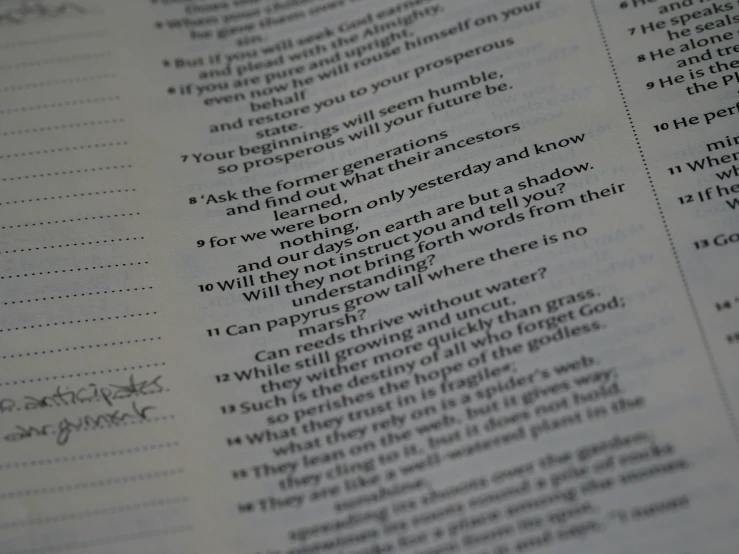 4 When your children
he gave them over
sin.
5 But if you will seek God earnestly
and plead with the Almighty,
6 if you are pure and upright,
even now he will rouse himself on your
behalf
and restore you to your prosperous
state.
7 Your beginnings will seem humble,
so prosperous will your future be.
8 ‘Ask the former generations
and find out what their ancestors
learned,
9 for we were born only yesterday and know
nothing,
and our days on earth are but a shadow.
10 Will they not instruct you and tell you?
Will they not bring forth words from their
understanding?
11 Can papyrus grow tall where there is no
marsh?
Can reeds thrive without water?
12 While still growing and uncut,
they wither more quickly than grass.
13 Such is the destiny of all who forget God;
so perishes the hope of the godless.
14 What they trust in is fragile;
what they rely on is a spider’s web.
15 They lean on the web, but it gives way;
they cling to it, but it does not hold.
16 They are like a well-watered plant in the
sunshine,
spreading its shoots over the garden;
its roots round a pile of rocks
for a place among the stones.
from its spot,
and says, “I never
7 He speaks
he seals
8 He alone
and tre
9 He is the
the Pl
10 He perf
mir
11 When
wh
12 If he
w
13 Go
14
anticipates
argument